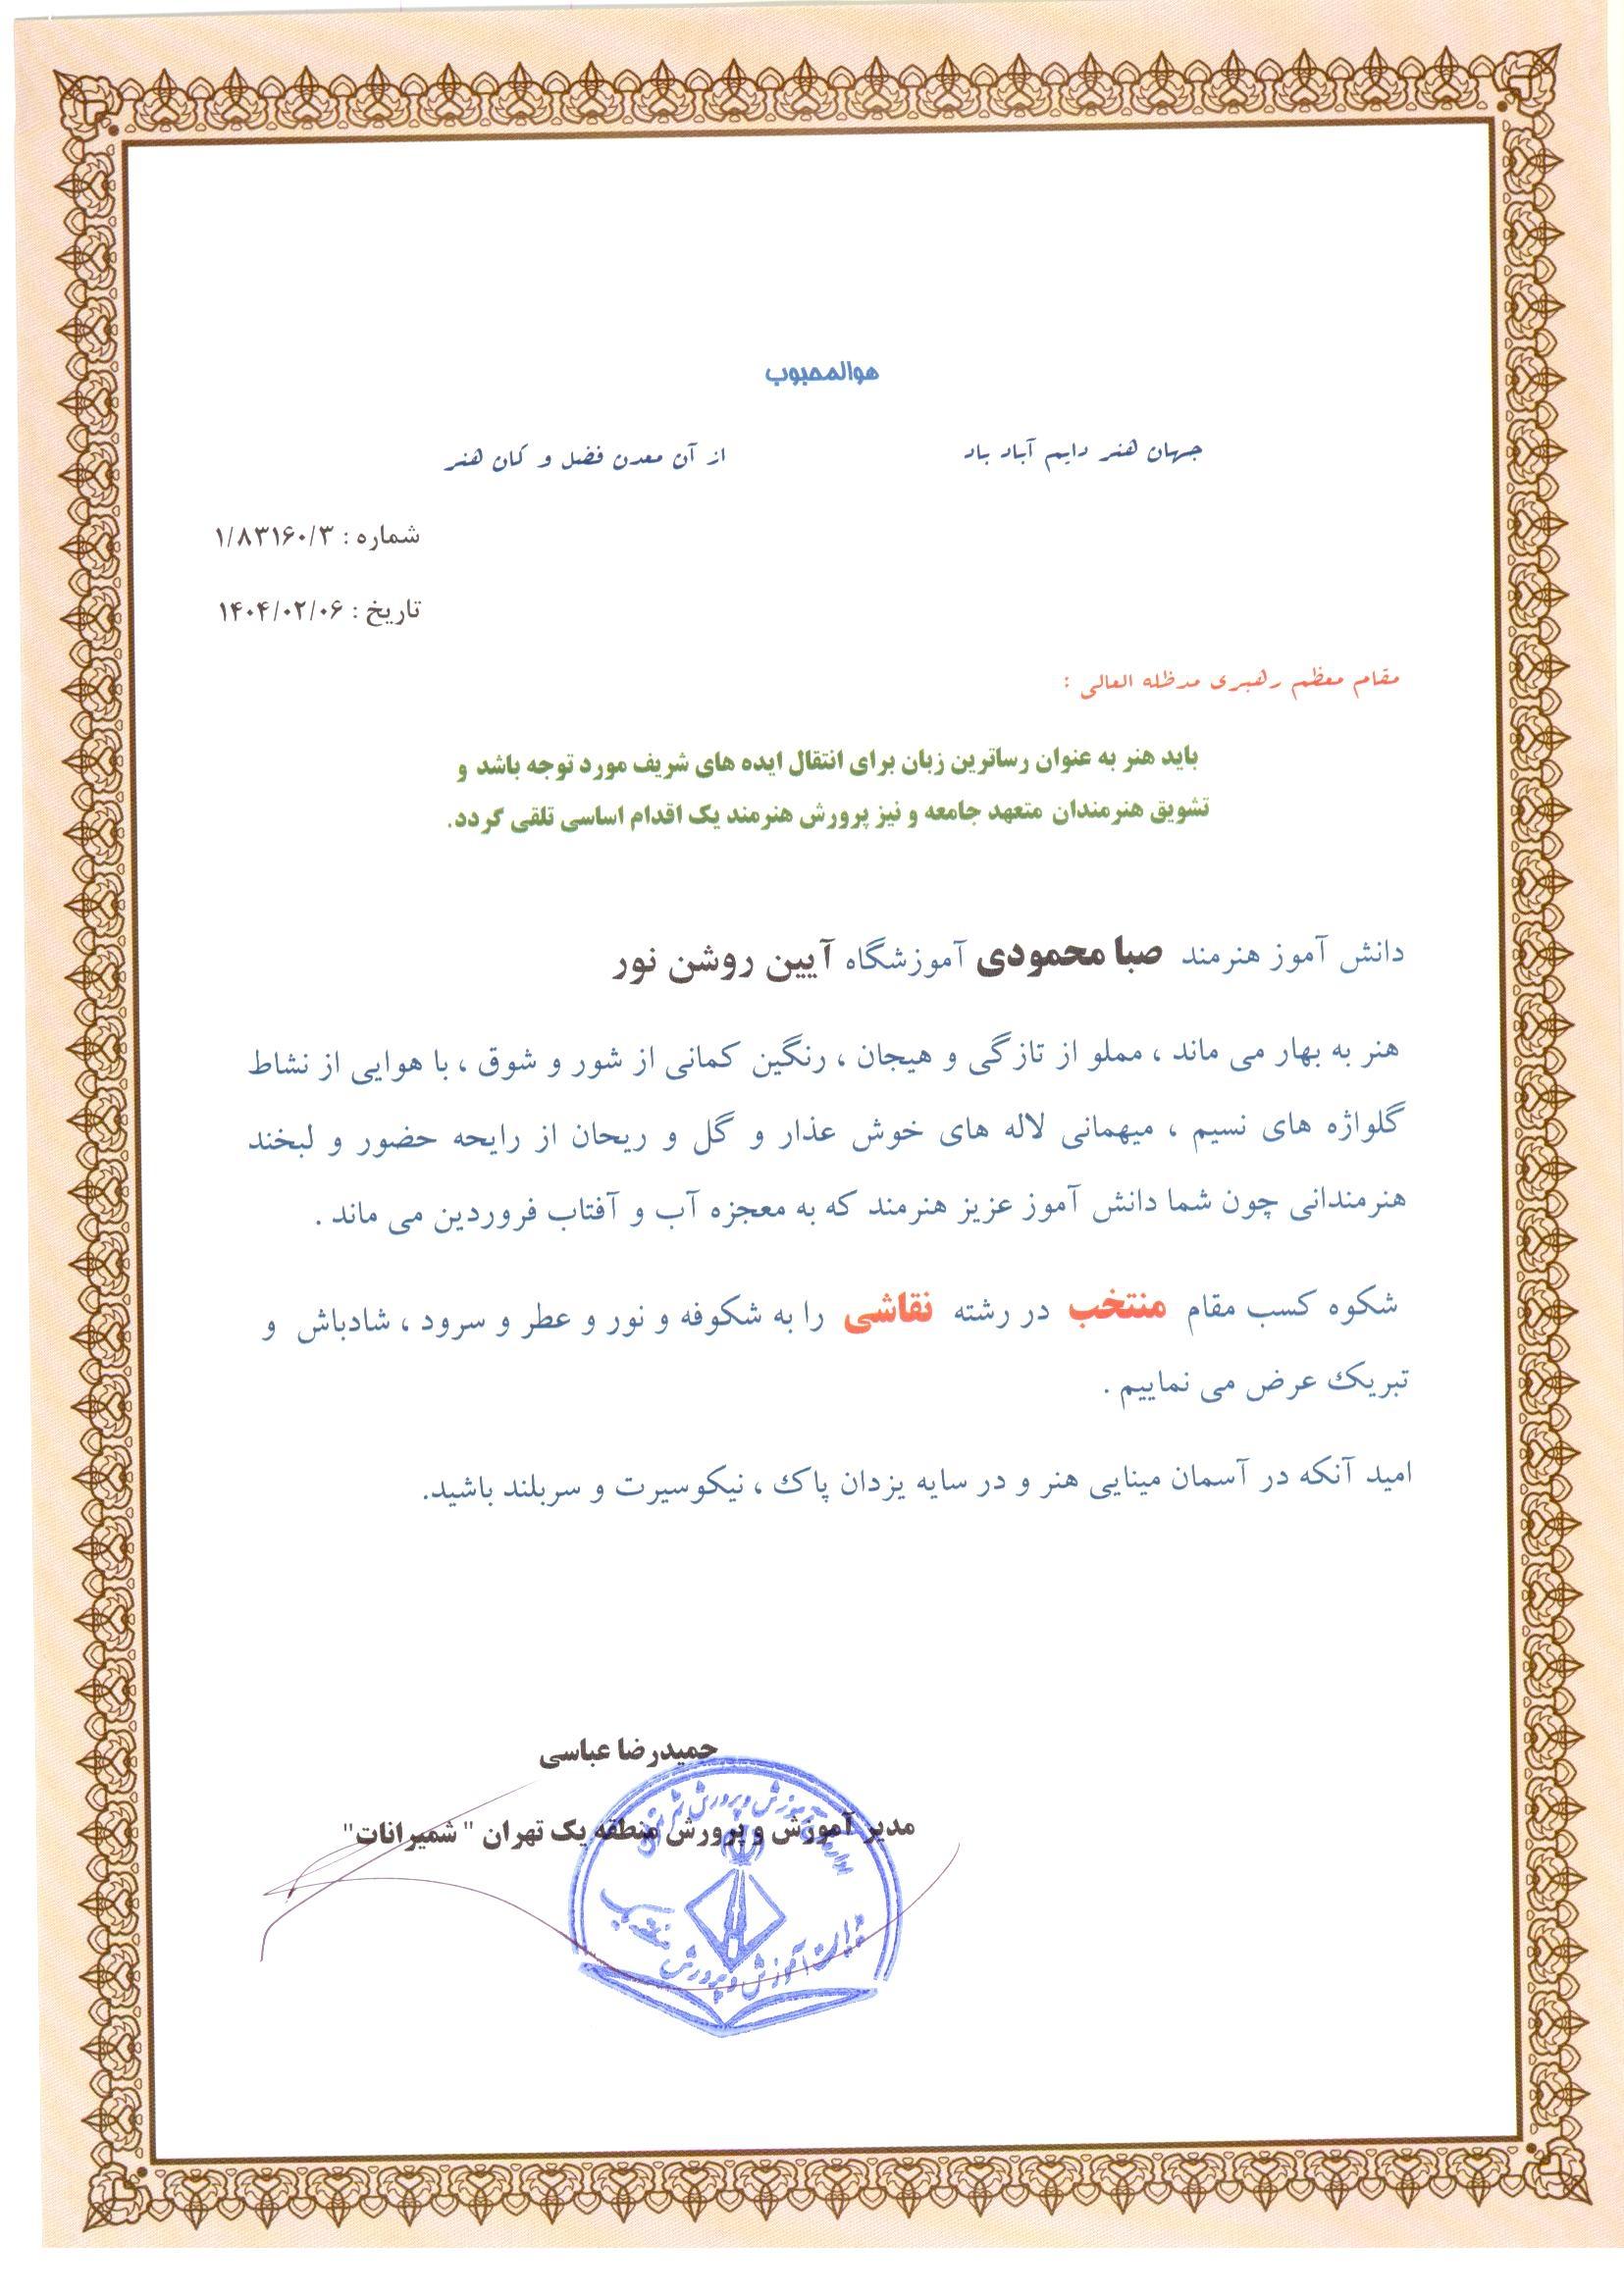 هوالمحبوب
جهان هنر دایم آباد باد از آن معدن فضل و کان هنر
شماره : ۱/۸۳۱۶۰/۳
تاریخ : ۱۴۰۴/۰۲/۰۶
مقام معظم رهبری مدظله العالی :
باید هنر به عنوان رساترین زبان برای انتقال ایده های شریف مورد توجه باشد و
تشویق هنرمندان متعهد جامعه و نیز پرورش هنرمند یک اقدام اساسی تلقی گردد.
دانش آموز هنرمند صبا محمودی آموزشگاه آیین روشن نور
هنر به بهار می ماند ، مملو از تازگی و هیجان ، رنگین کمانی از شور و شوق ، با هوایی از نشاط
گلواژه های نسیم ، میهمانی لاله های خوش عذار و گل و ریحان از رایحه حضور و لبخند
هنرمندانی چون شما دانش آموز عزیز هنرمند که به معجزه آب و آفتاب فروردین می ماند .
شکوه کسب مقام منتخب در رشته نقاشی را به شکوفه و نور و عطر و سرود ، شادباش و
تبریک عرض می نماییم .
امید آنکه در آسمان مینایی هنر و در سایه یزدان پاک ، نیکوسیرت و سربلند باشید.
حمیدرضا عباسی
مدیر آموزش و پرورش منطقه یک تهران " شمیرانات"
آموزش و پرورش
آموزش و پرورش